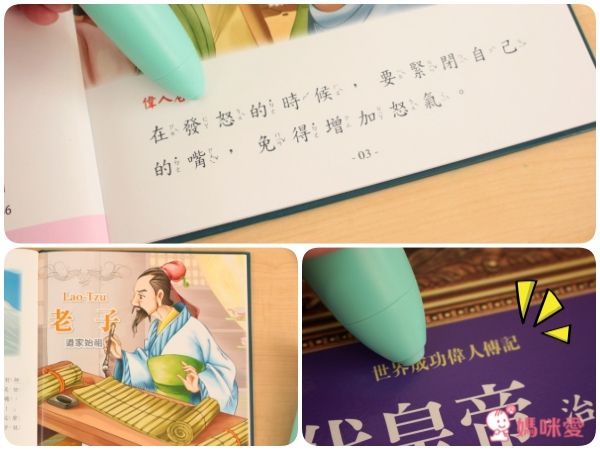 偉人
在發怒的時候，要緊閉自己
的嘴，免得增加怒氣。
-03-
6
Lao-Tzu
老子
道家始祖
世界成功偉人傳記
代皇帝 治
媽咪愛